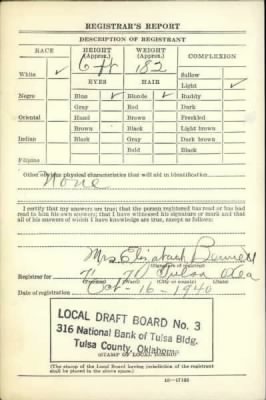 REGISTRAR'S REPORT
DESCRIPTION OF REGISTRANT
RACE
HEIGHT (Approx.)
WEIGHT (Approx.)
COMPLEXION
6 ft
182
White ✓
Sallow
EYES
HAIR
Light ✓
Negro
Blue ✓
Blonde ✓
Ruddy
Gray
Red
Dark
Oriental
Hazel
Brown
Freckled
Brown
Black
Light brown
Indian
Black
Gray
Dark brown
Bald
Black
Filipino
Other obvious physical characteristics that will aid in identification
None
I certify that my answers are true; that the person registered has read or has had
read to him his own answers; that I have witnessed his signature or mark and that
all of his answers of which I have knowledge are true, except as follows:
Mrs. Elizabeth Bennett
(Signature of registrar)
Registrar for Tulsa Okla
(Ward) (City or county) (State)
Date of registration Oct-16-1940
LOCAL DRAFT BOARD No. 3
316 National Bank of Tulsa Bldg.
Tulsa County, Oklahoma
(STAMP OF LOCAL BOARD)
(The stamp of the Local Board having jurisdiction of the registrant
shall be placed in the above space.)
16-17105